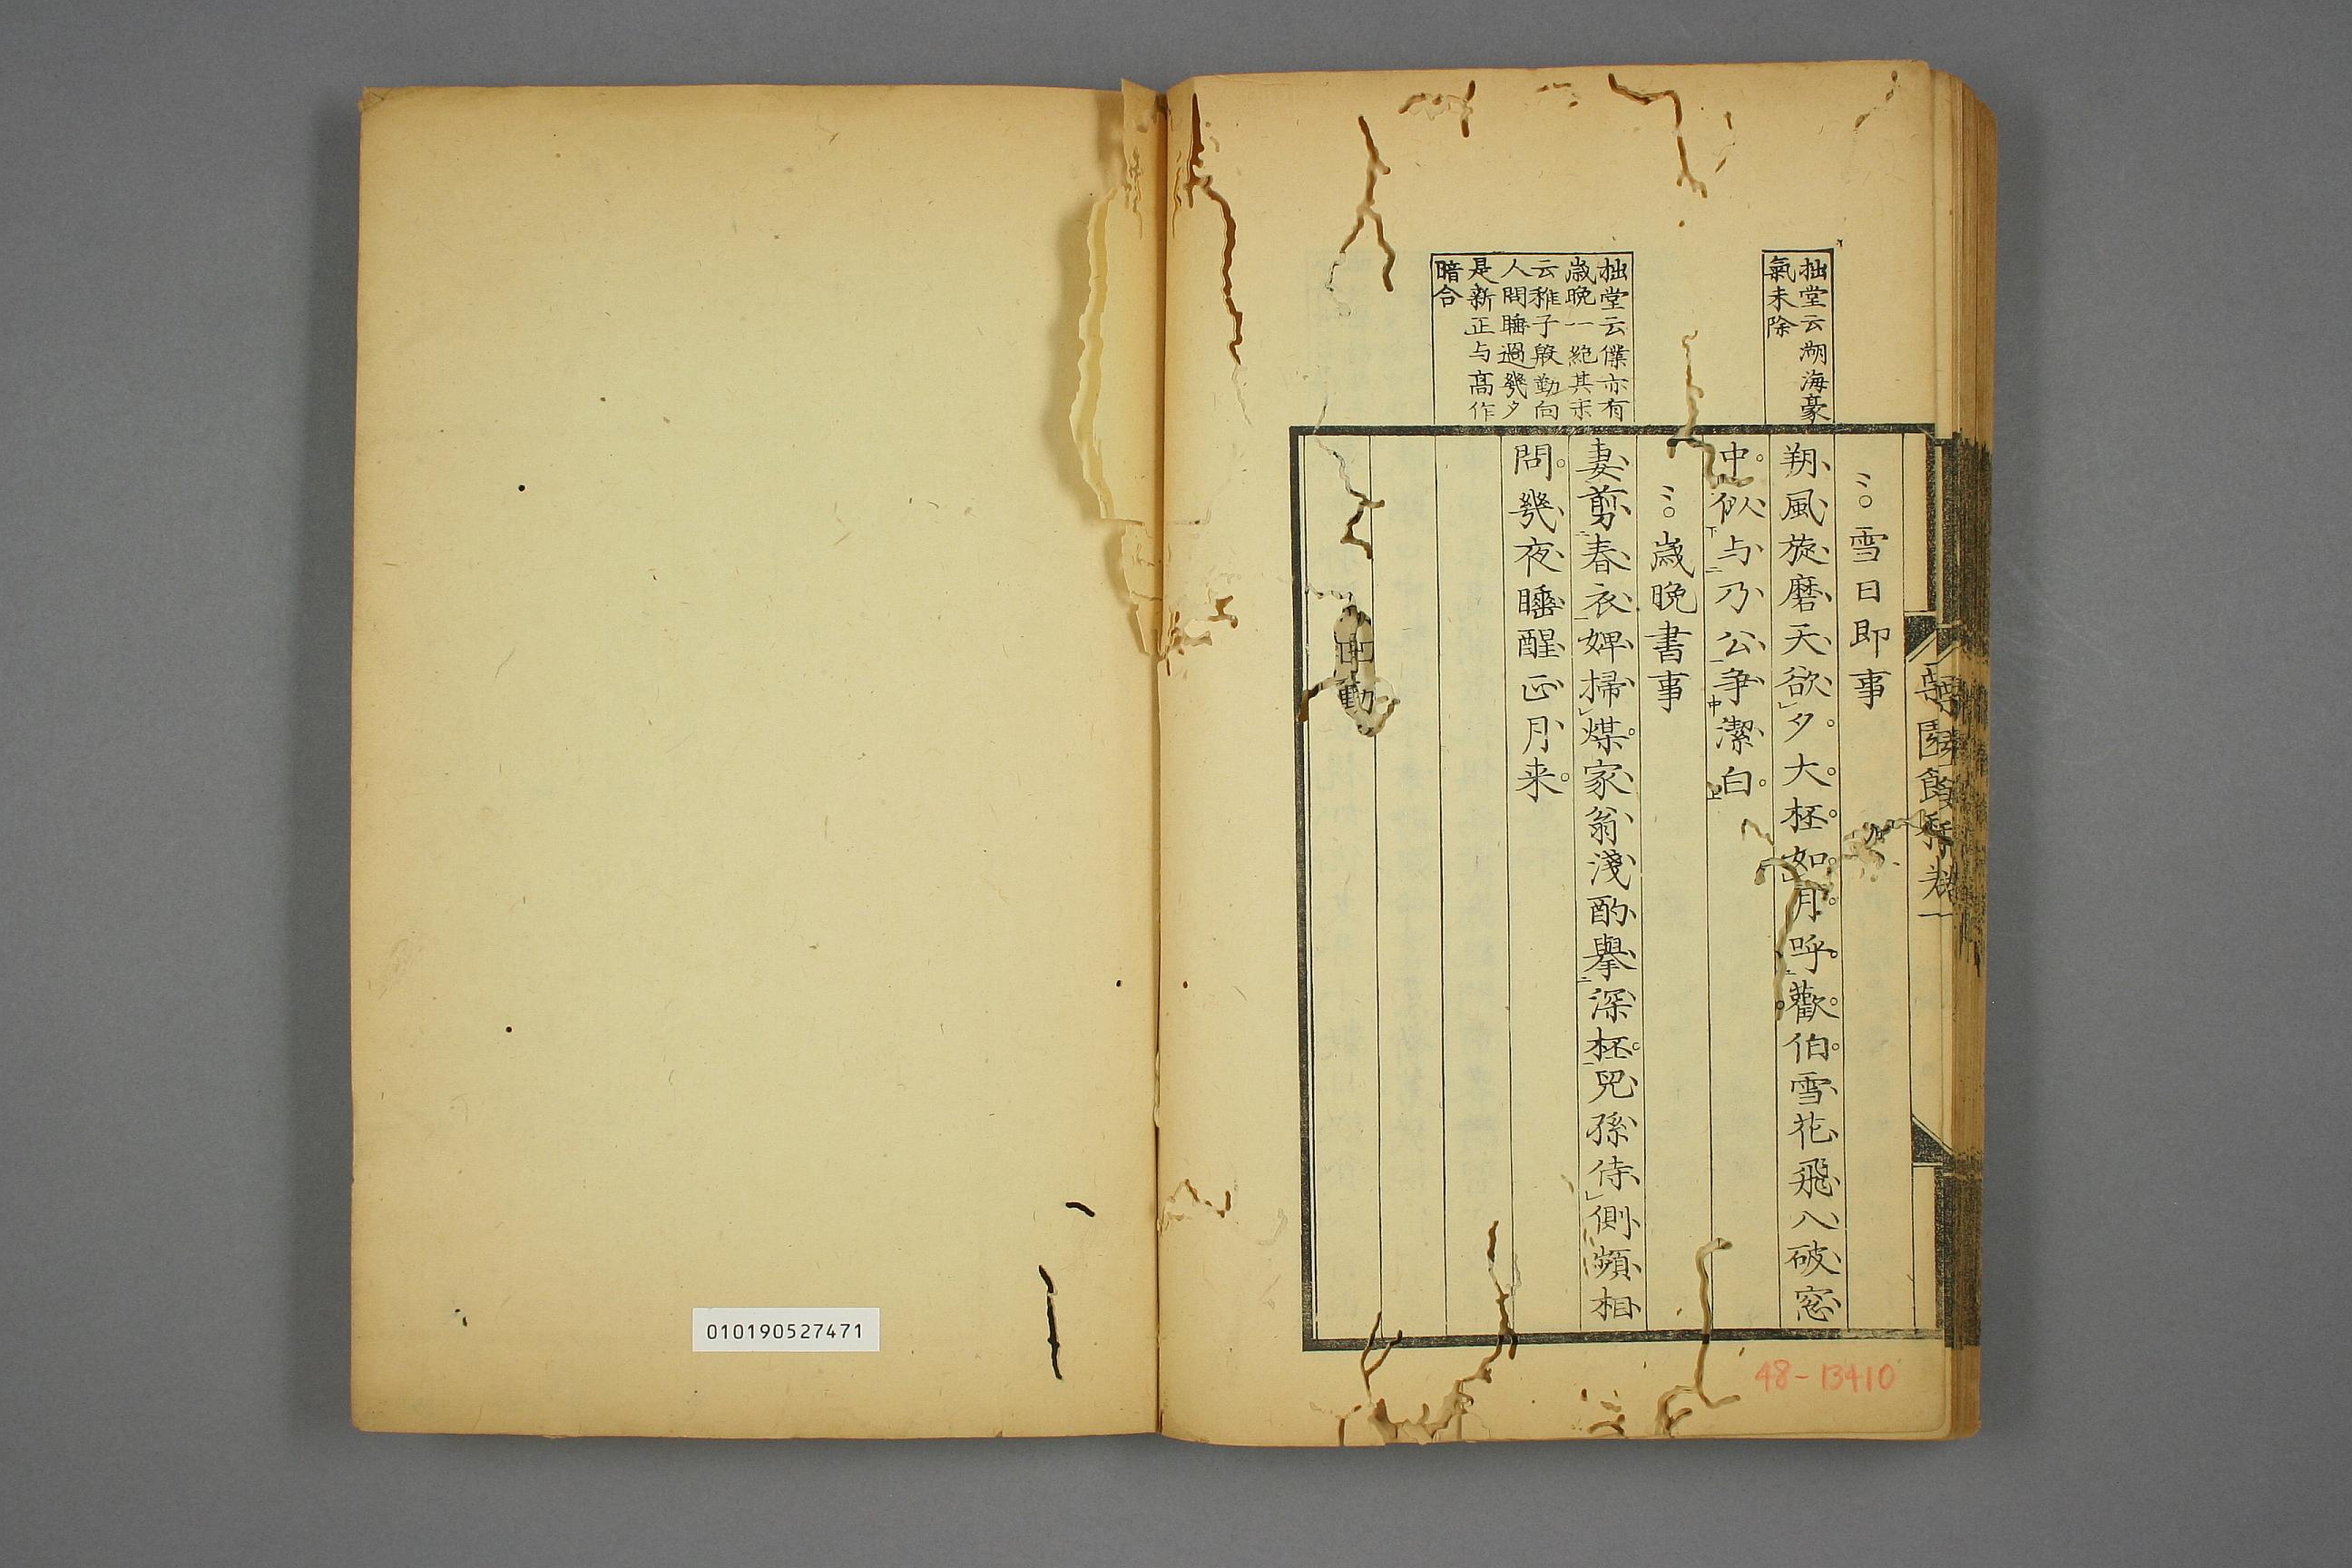 拙堂云湖海豪
氣未除
拙堂云僕亦有
歳晩一絶其末
云稚子殷勤向
人問睡過幾夕
是新正与高作
暗合
雪日即事
朔風旋磨天欲夕大杯如月呼歡伯雪花飛入破窓
中似与乃公争潔白
歳晩書事
妻剪春衣婢掃煤家翁淺酌擧深杯兒孫侍側頻相
問幾夜睡醒正月来
動
園餘 卷一
48-13410
010190527471